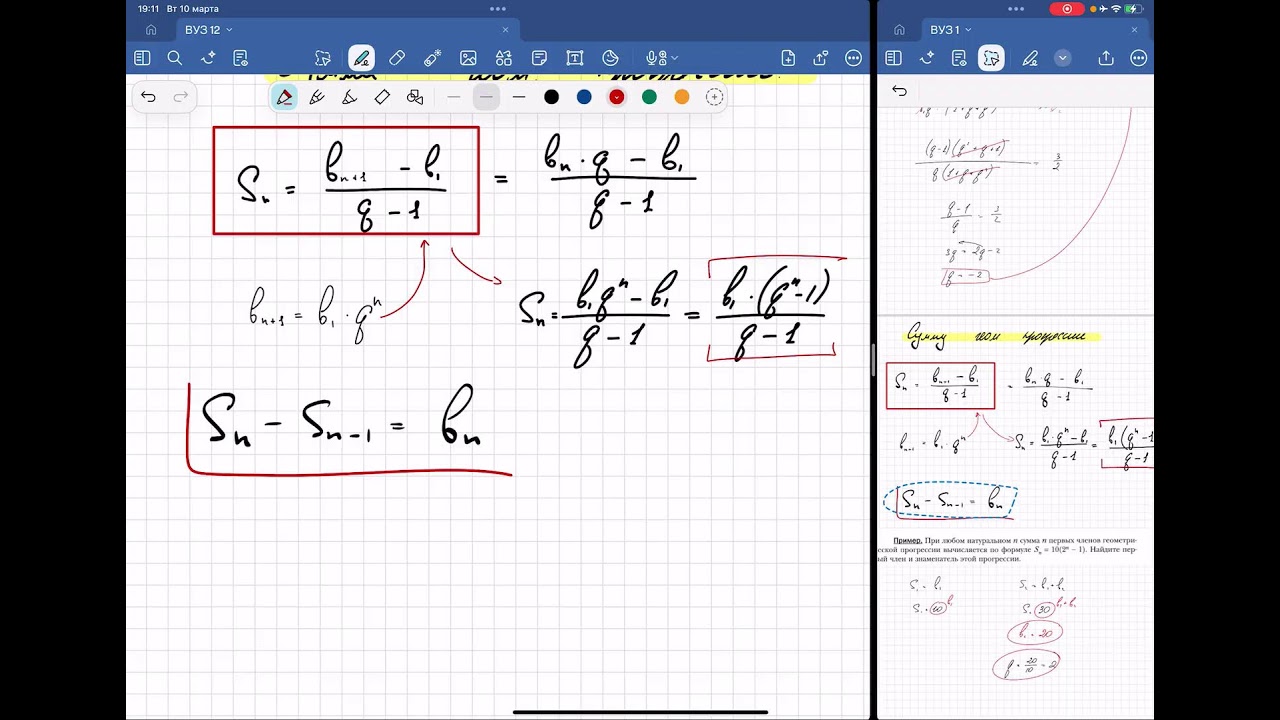 19:11 Вт 10 марта
ВУЗ 12
Sₙ = (bₙ₊₁ − b₁)/(q − 1) = (bₙ · q − b₁)/(q − 1)
bₙ₊₁ = b₁ · qⁿ
Sₙ = (b₁qⁿ − b₁)/(q − 1) = (b₁ · (qⁿ − 1))/(q − 1)
Sₙ − Sₙ₋₁ = bₙ
ВУЗ 1
= 3/2
(q − 1)/q = 3/2
3q = 2q − 2
q = −2
Сумму геом прогрессии
Sₙ = (bₙ₊₁ − b₁)/(q − 1) = (bₙ · q − b₁)/(q − 1)
bₙ₊₁ = b₁ · qⁿ
Sₙ = (b₁ · qⁿ − b₁)/(q − 1) = (b₁(qⁿ − 1)/(q − 1)
Sₙ − Sₙ₋₁ = bₙ
Пример. При любом натуральном n сумма n первых членов геометри-
ческой прогрессии вычисляется по формуле Sₙ = 10(2ⁿ − 1). Найдите пер-
вый член и знаменатель этой прогрессии.
S₁ = b₁ S₂ = b₁ + b₂
S₁ = 10 b₁ S₂ = 30 b₁ + b₂
b₂ = 20
q = 20/10 = 2